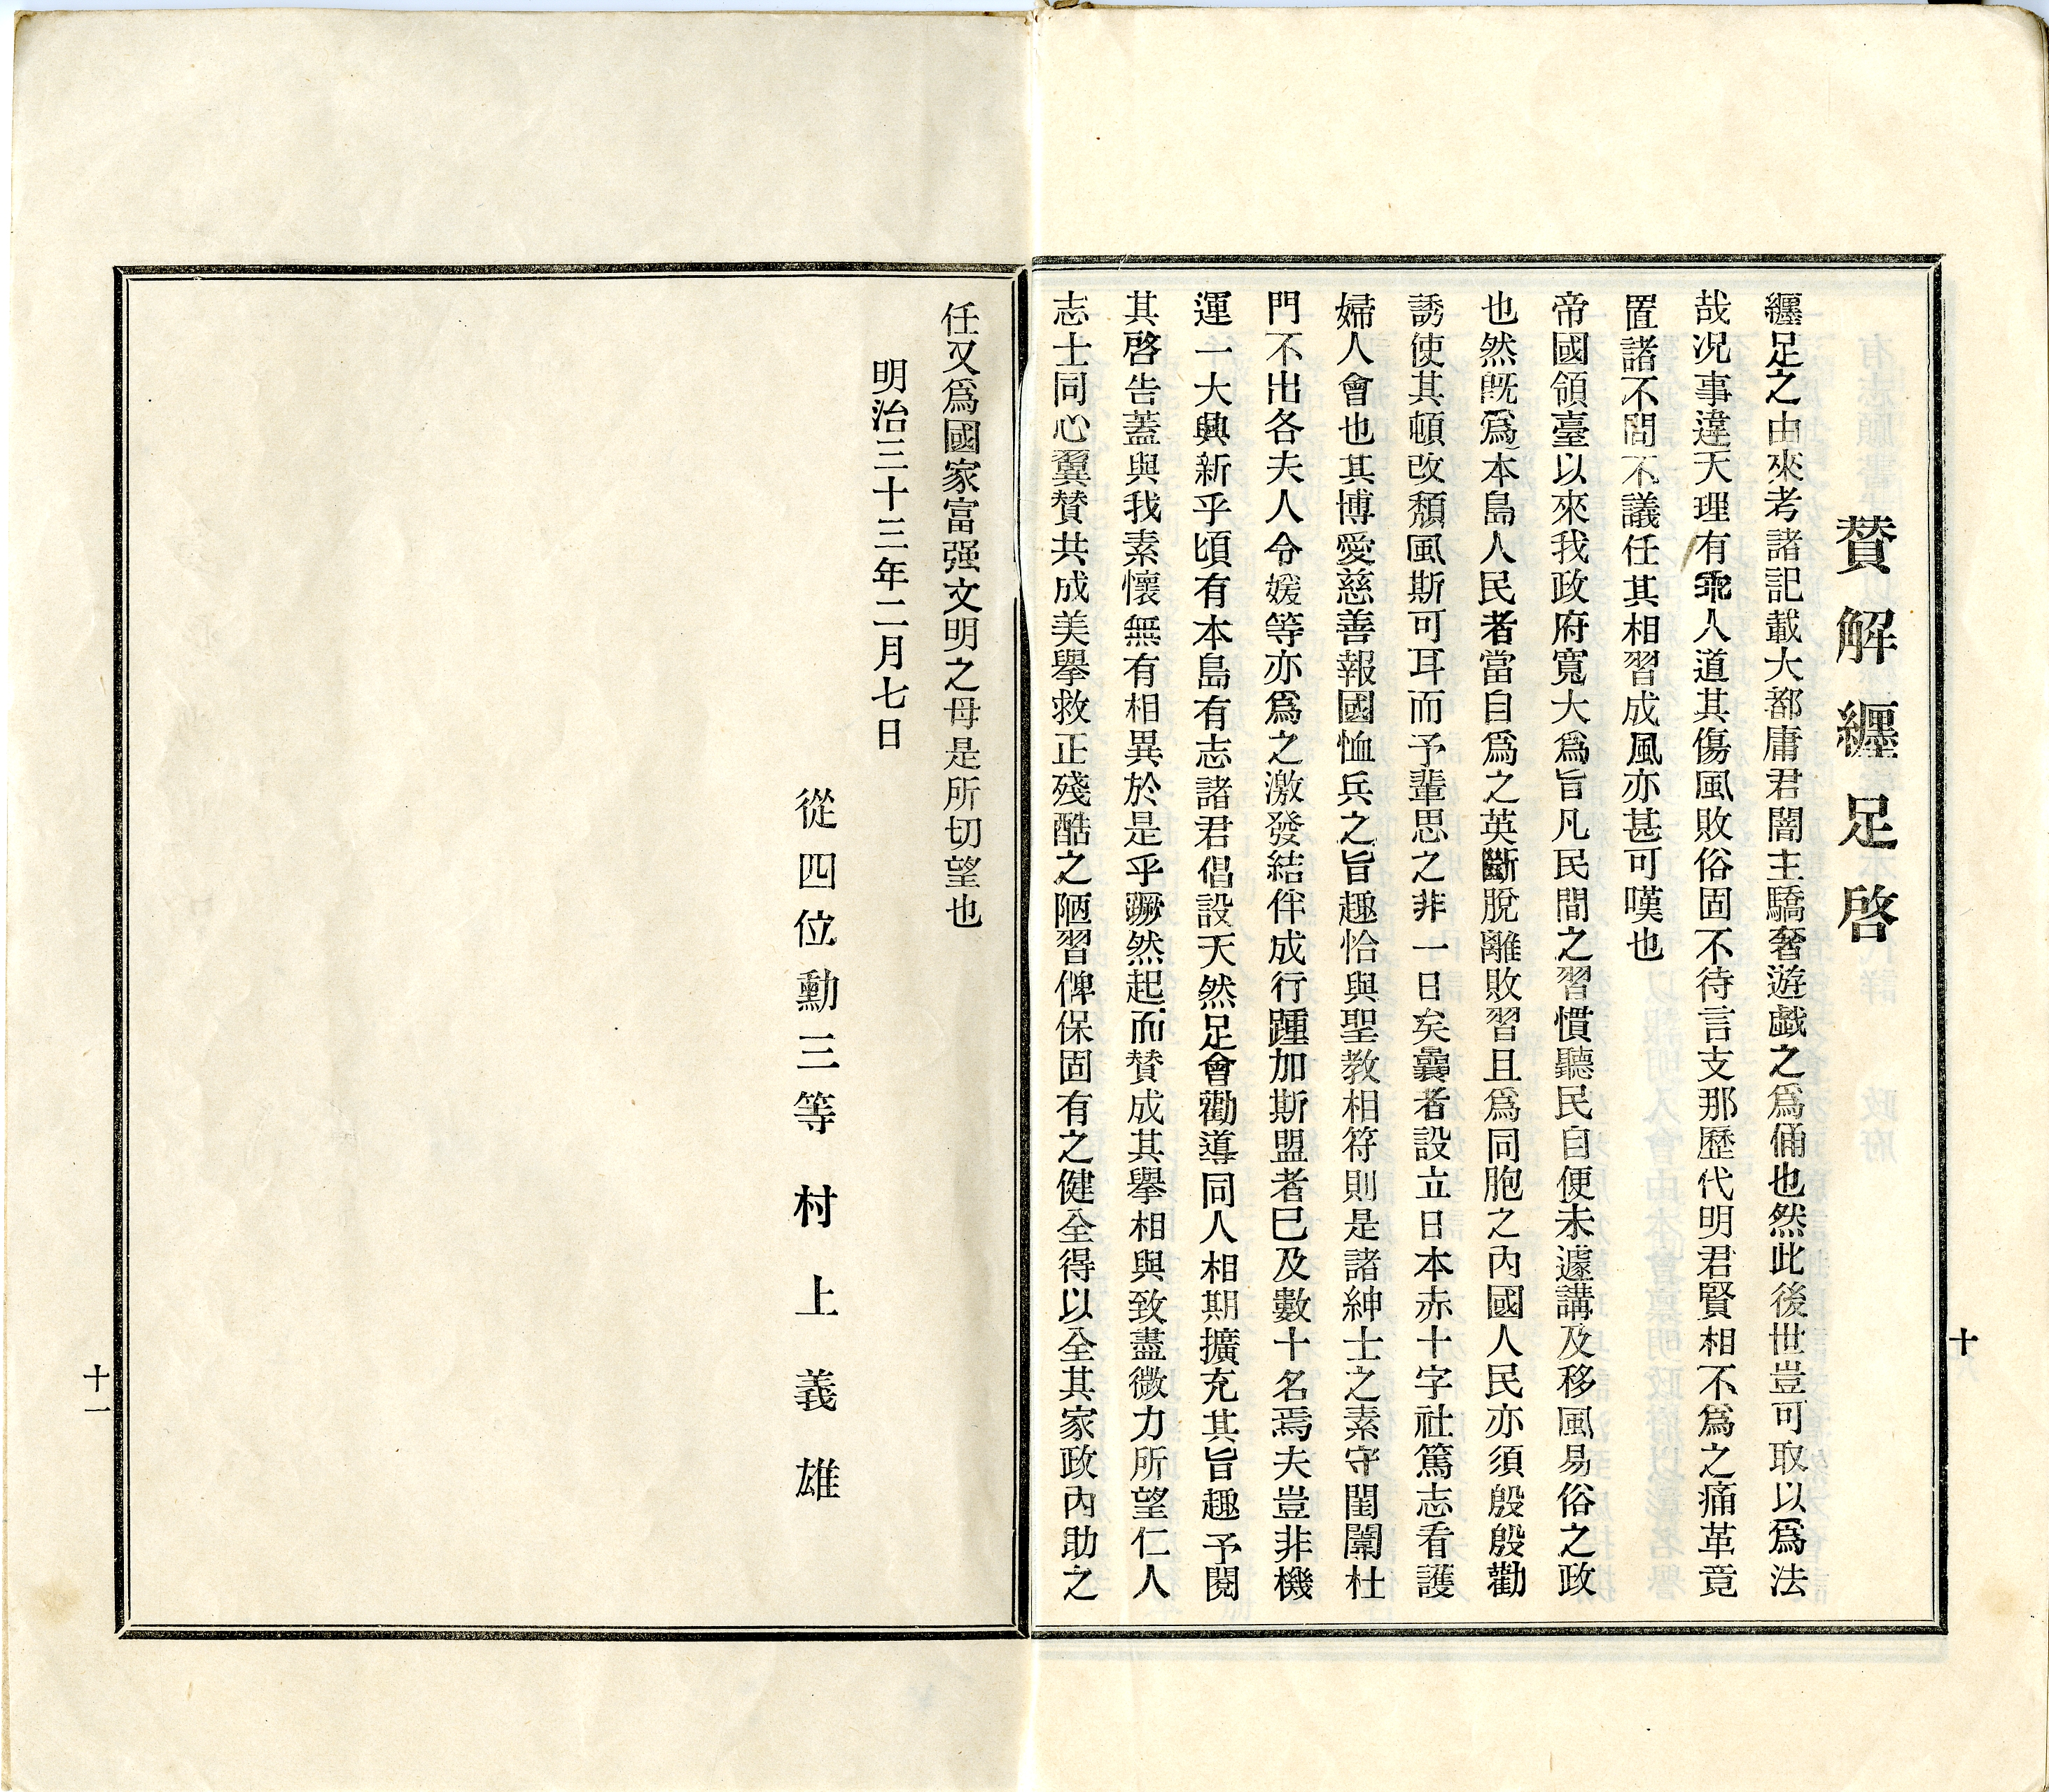 賛解纒足啓
纒足之由來考諸記載大都庸君闇主驕奢遊戯之爲俑也然此後世豈可取以爲法
哉况事違天理有乖人道其傷風敗俗固不待言支那歷代明君賢相不爲之痛革竟
置諸不問不議任其相習成風亦甚可嘆也
帝國領臺以來我政府寬大爲旨凡民間之習慣聽民自便未遽講及移風易俗之政
也然旣爲本島人民者當自爲之英斷脫離敗習且爲同胞之內國人民亦須殷殷勸
誘使其頓改頹風斯可耳而予輩思之非一日矣曩者設立日本赤十字社篤志看護
婦人會也其博愛慈善報國恤兵之旨趣恰與聖教相符則是諸紳士之素守閨闈杜
門不出各夫人令媛等亦爲之激發結伴成行踵加斯盟者巳及數十名焉夫豈非機
運一大興新乎頃有本島有志諸君倡設天然足會勸導同人相期擴充其旨趣予閱
其啓告蓋與我素懷無有相異於是乎蹶然起而賛成其擧相與致盡微力所望仁人
志士同心翼賛共成美擧救正殘酷之陋習俾保固有之健全得以全其家政內助之
十
任又爲國家富强文明之母是所切望也
明治三十三年二月七日
從四位勳三等 村上義雄
十一